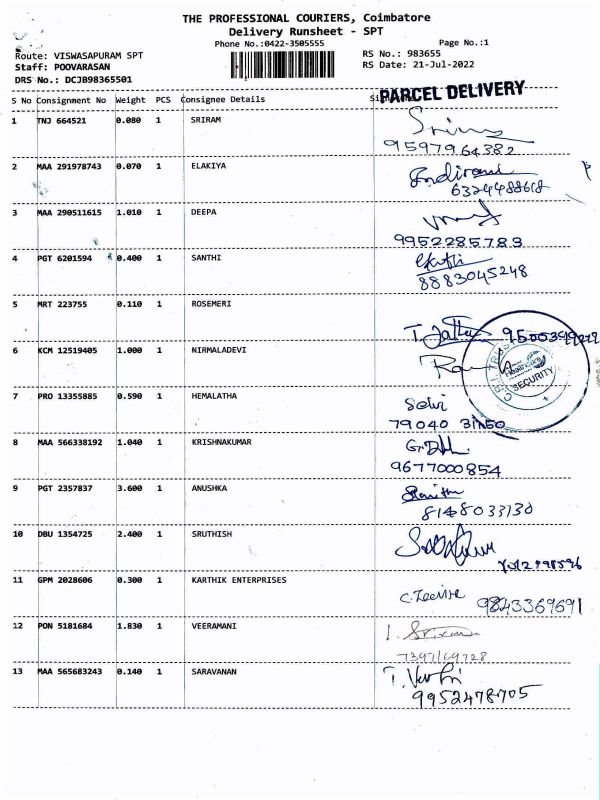 THE PROFESSIONAL COURIERS, Coimbatore
Delivery Runsheet - SPT
Phone No.:0422-3505555 Page No.:1
Route: VISWASAPURAM SPT RS No.: 983655
Staff: POOVARASAN RS Date: 21-Jul-2022
DRS No.: DCJB98365501
PARCEL DELIVERY
S No Consignment No Weight PCS Consignee Details
1 TNJ 664521 0.080 1 SRIRAM
9597964382
2 MAA 291978743 0.070 1 ELAKIYA
6324488618
3 MAA 290511615 1.010 1 DEEPA
9952285783
4 PGT 6201594 0.400 1 SANTHI
8883045248
5 MRT 223755 0.110 1 ROSEMERI
6 KCM 12519405 1.000 1 NIRMALADEVI
SECURITY
7 PRO 13355885 0.590 1 HEMALATHA
Selvi
79040 31150
8 MAA 566338192 1.040 1 KRISHNAKUMAR
9677000854
9 PGT 2357837 3.600 1 ANUSHKA
8148033130
10 DBU 1354725 2.400 1 SRUTHISH
11 GPM 2028606 0.300 1 KARTHIK ENTERPRISES
9843369691
12 PON 5181684 1.830 1 VEERAMANI
7397169728
13 MAA 565683243 0.140 1 SARAVANAN
9952478705